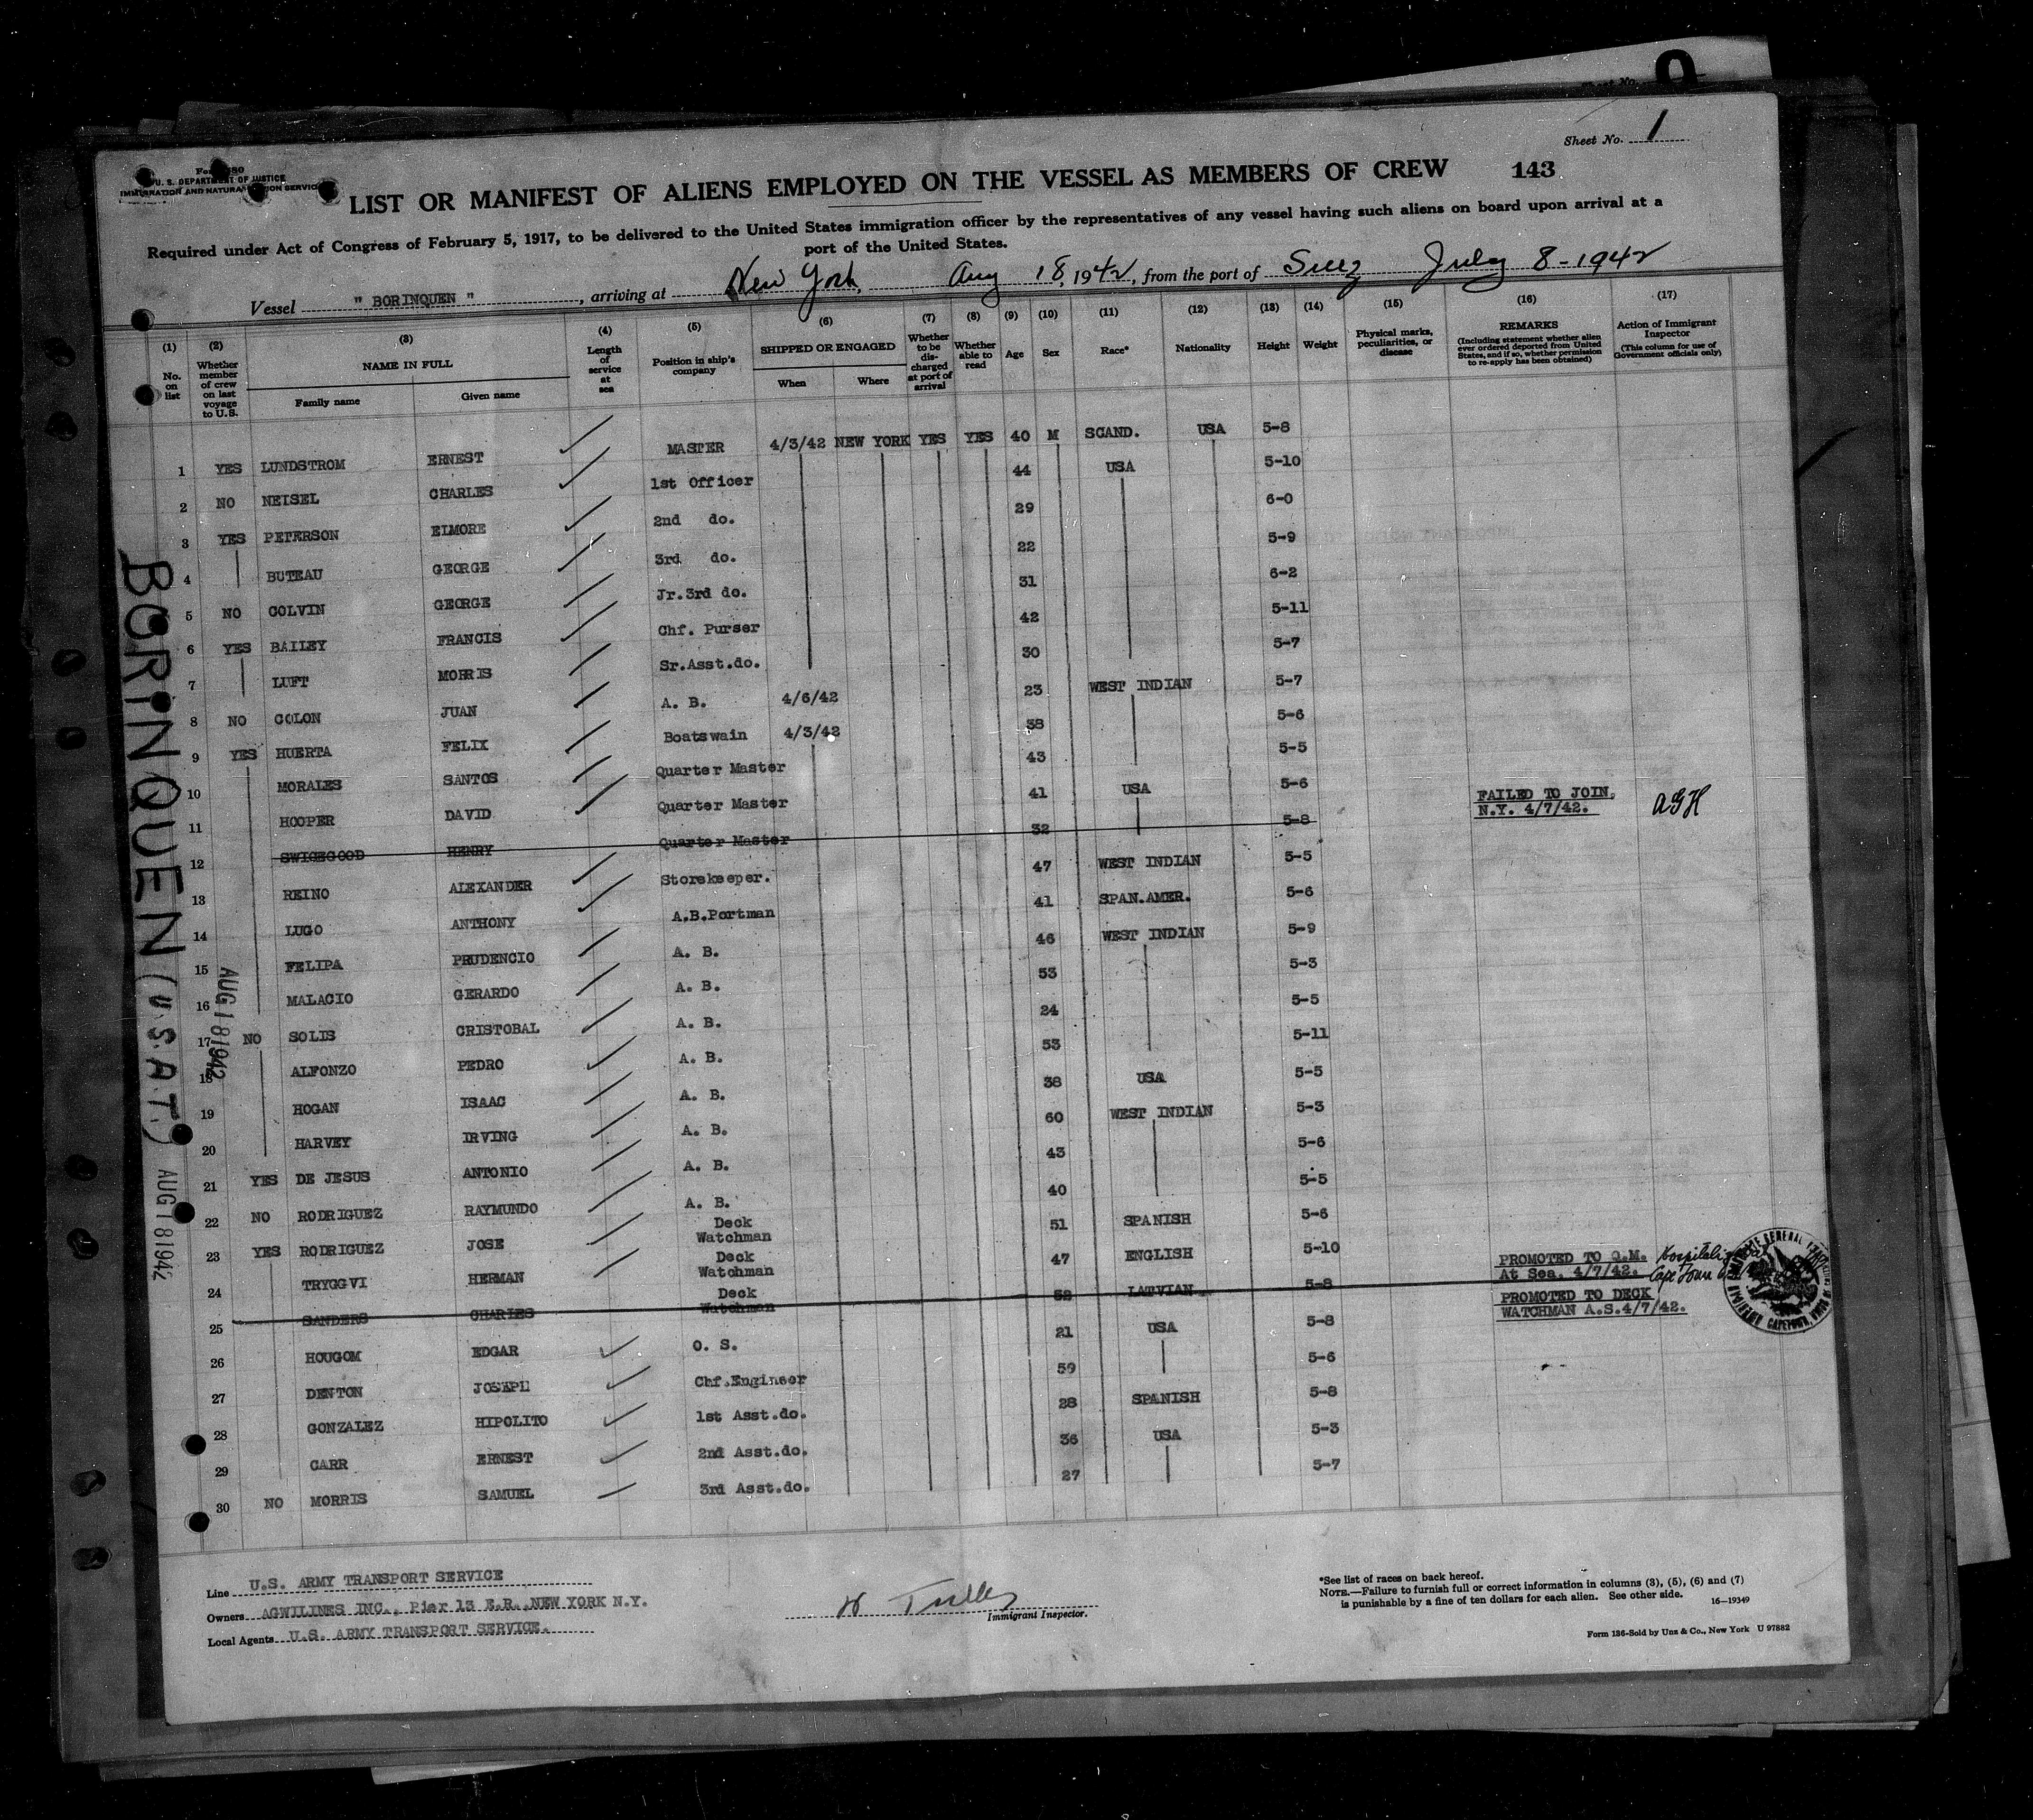 Sheet No. 1
U. S. DEPARTMENT OF JUSTICE
LIST OR MANIFEST OF ALIENS EMPLOYED ON THE VESSEL AS MEMBERS OF CREW 143
Required under Act of Congress of February 5, 1917, to be delivered to the United States immigration officer by the representatives of any vessel having such aliens on board upon arrival at a
port of the United States.
Vessel " BORINQUEN ", arriving at New York, Aug 18, 1942, from the port of Suez July 8-1942
(1) (2) (3) (4) (5) (6) (7) (8) (9) (10) (11) (12) (13) (14) (15) (16) (17)
No. on list
Whether member of crew on last voyage to U.S.
NAME IN FULL
Family name Given name
Length of service at sea
Position in ship's company
SHIPPED OR ENGAGED
When Where
Whether to be discharged at port of arrival
Whether able to read
Age Sex Race* Nationality Height Weight
Physical marks, peculiarities, or disease
REMARKS
(Including statement whether alien ever ordered deported from United States, and if so, whether permission to re-apply has been obtained)
Action of Immigrant Inspector
(This column for use of Government officials only)
1 YES LUNDSTROM ERNEST MASTER 4/3/42 NEW YORK YES YES 40 M SCAND. USA 5-8
2 NO NEISEL CHARLES 1st Officer 44 USA 5-10
3 YES PETERSON ELMORE 2nd do. 29 6-0
4 BUTEAU GEORGE 3rd do. 22 5-9
5 NO COLVIN GEORGE Jr.3rd do. 31 6-2
6 YES BAILEY FRANCIS Chf. Purser 42 5-11
7 LUFT MORRIS Sr.Asst.do. 30 5-7
8 NO COLON JUAN A. B. 4/6/42 23 WEST INDIAN 5-7
9 YES HUERTA FELIX Boatswain 4/3/42 38 5-6
10 MORALES SANTOS Quarter Master 43 5-5
11 HOOPER DAVID Quarter Master 41 USA 5-6
12 SWICEGOOD HENRY Quarter Master 32 5-8 FAILED TO JOIN. N.Y. 4/7/42. AGH
13 REINO ALEXANDER Storekeeper. 47 WEST INDIAN 5-5
14 LUGO ANTHONY A.B.Portman 41 SPAN.AMER. 5-6
15 FELIPA PRUDENCIO A. B. 46 WEST INDIAN 5-9
16 MALACIO GERARDO A. B. 53 5-3
17 NO SOLIS CRISTOBAL A. B. 24 5-5
18 ALFONZO PEDRO A. B. 53 5-11
19 HOGAN ISAAC A. B. 38 USA 5-5
20 HARVEY IRVING A. B. 60 WEST INDIAN 5-3
21 YES DE JESUS ANTONIO A. B. 43 5-6
22 NO RODRIGUEZ RAYMUNDO A. B. 40 5-5
23 YES RODRIGUEZ JOSE Deck Watchman 51 SPANISH 5-6
24 TRYGGVI HERMAN Deck Watchman 47 ENGLISH 5-10 PROMOTED TO Q.M. At Sea. 4/7/42.
25 SANDERS CHARLES Deck Watchman 52 LATVIAN 5-8 PROMOTED TO DECK WATCHMAN A.S.4/7/42.
Cape Town
26 HOUGOM EDGAR O. S. 21 USA 5-8
27 DENTON JOSEPH Chf.Engineer 59 5-6
28 GONZALEZ HIPOLITO 1st Asst.do. 28 SPANISH 5-8
29 CARR ERNEST 2nd Asst.do. 36 USA 5-3
30 NO MORRIS SAMUEL 3rd Asst.do. 27 5-7
BORINQUEN (U.S.A.T.)
AUG 18 1942
AUG 18 1942
Line U.S. ARMY TRANSPORT SERVICE
Owners AGWILINES INC., Pier 13 E.R. NEW YORK N.Y.
Local Agents U.S. ARMY TRANSPORT SERVICE.
Immigrant Inspector.
*See list of races on back hereof.
NOTE.—Failure to furnish full or correct information in columns (3), (5), (6) and (7)
is punishable by a fine of ten dollars for each alien. See other side. 16—19349
Form 136-Sold by Unz & Co., New York U 97882